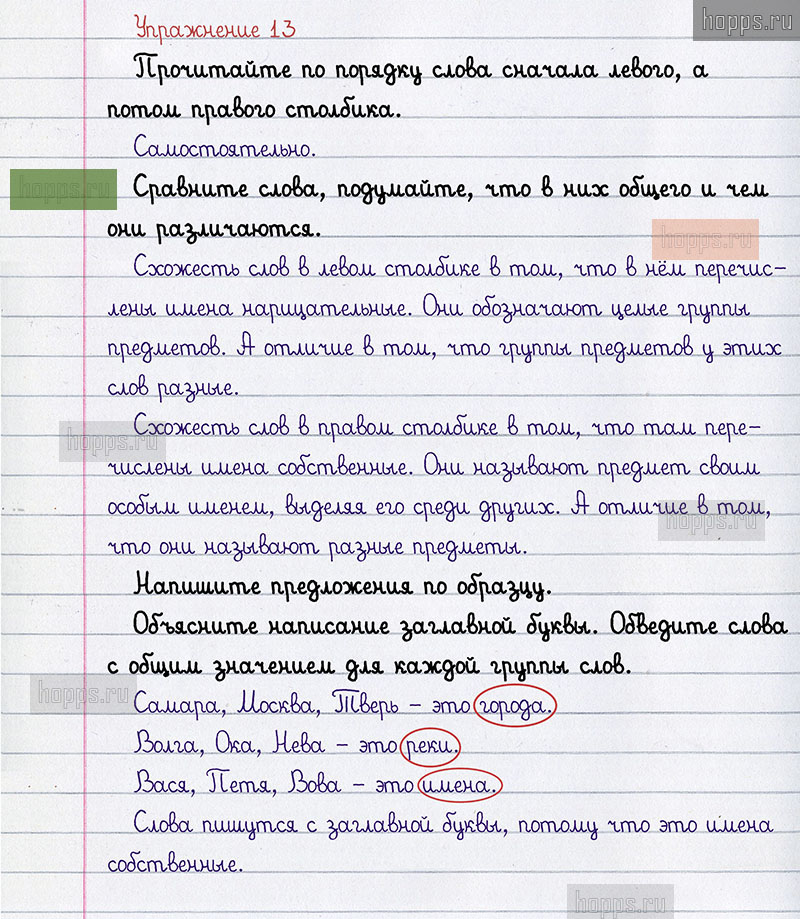 hopps.ru
Упражнение 13
Прочитайте по порядку слова сначала левого, а
потом правого столбика.
Самостоятельно.
hopps.ru
Сравните слова, подумайте, что в них общего и чем
они различаются.
hopps.ru
Схожесть слов в левом столбике в том, что в нём перечис-
лены имена нарицательные. Они обозначают целые группы
предметов. А отличие в том, что группы предметов у этих
слов разные.
Схожесть слов в правом столбике в том, что там пере-
hopps.ru
числены имена собственные. Они называют предмет своим
особым именем, выделяя его среди других. А отличие в том,
hopps.ru
что они называют разные предметы.
Напишите предложения по образцу.
Объясните написание заглавной буквы. Обведите слова
с общим значением для каждой группы слов.
hopps.ru
Самара, Москва, Тверь – это города.
Волга, Ока, Нева – это реки.
Вася, Петя, Вова – это имена.
Слова пишутся с заглавной буквы, потому что это имена
собственные.
hopps.ru